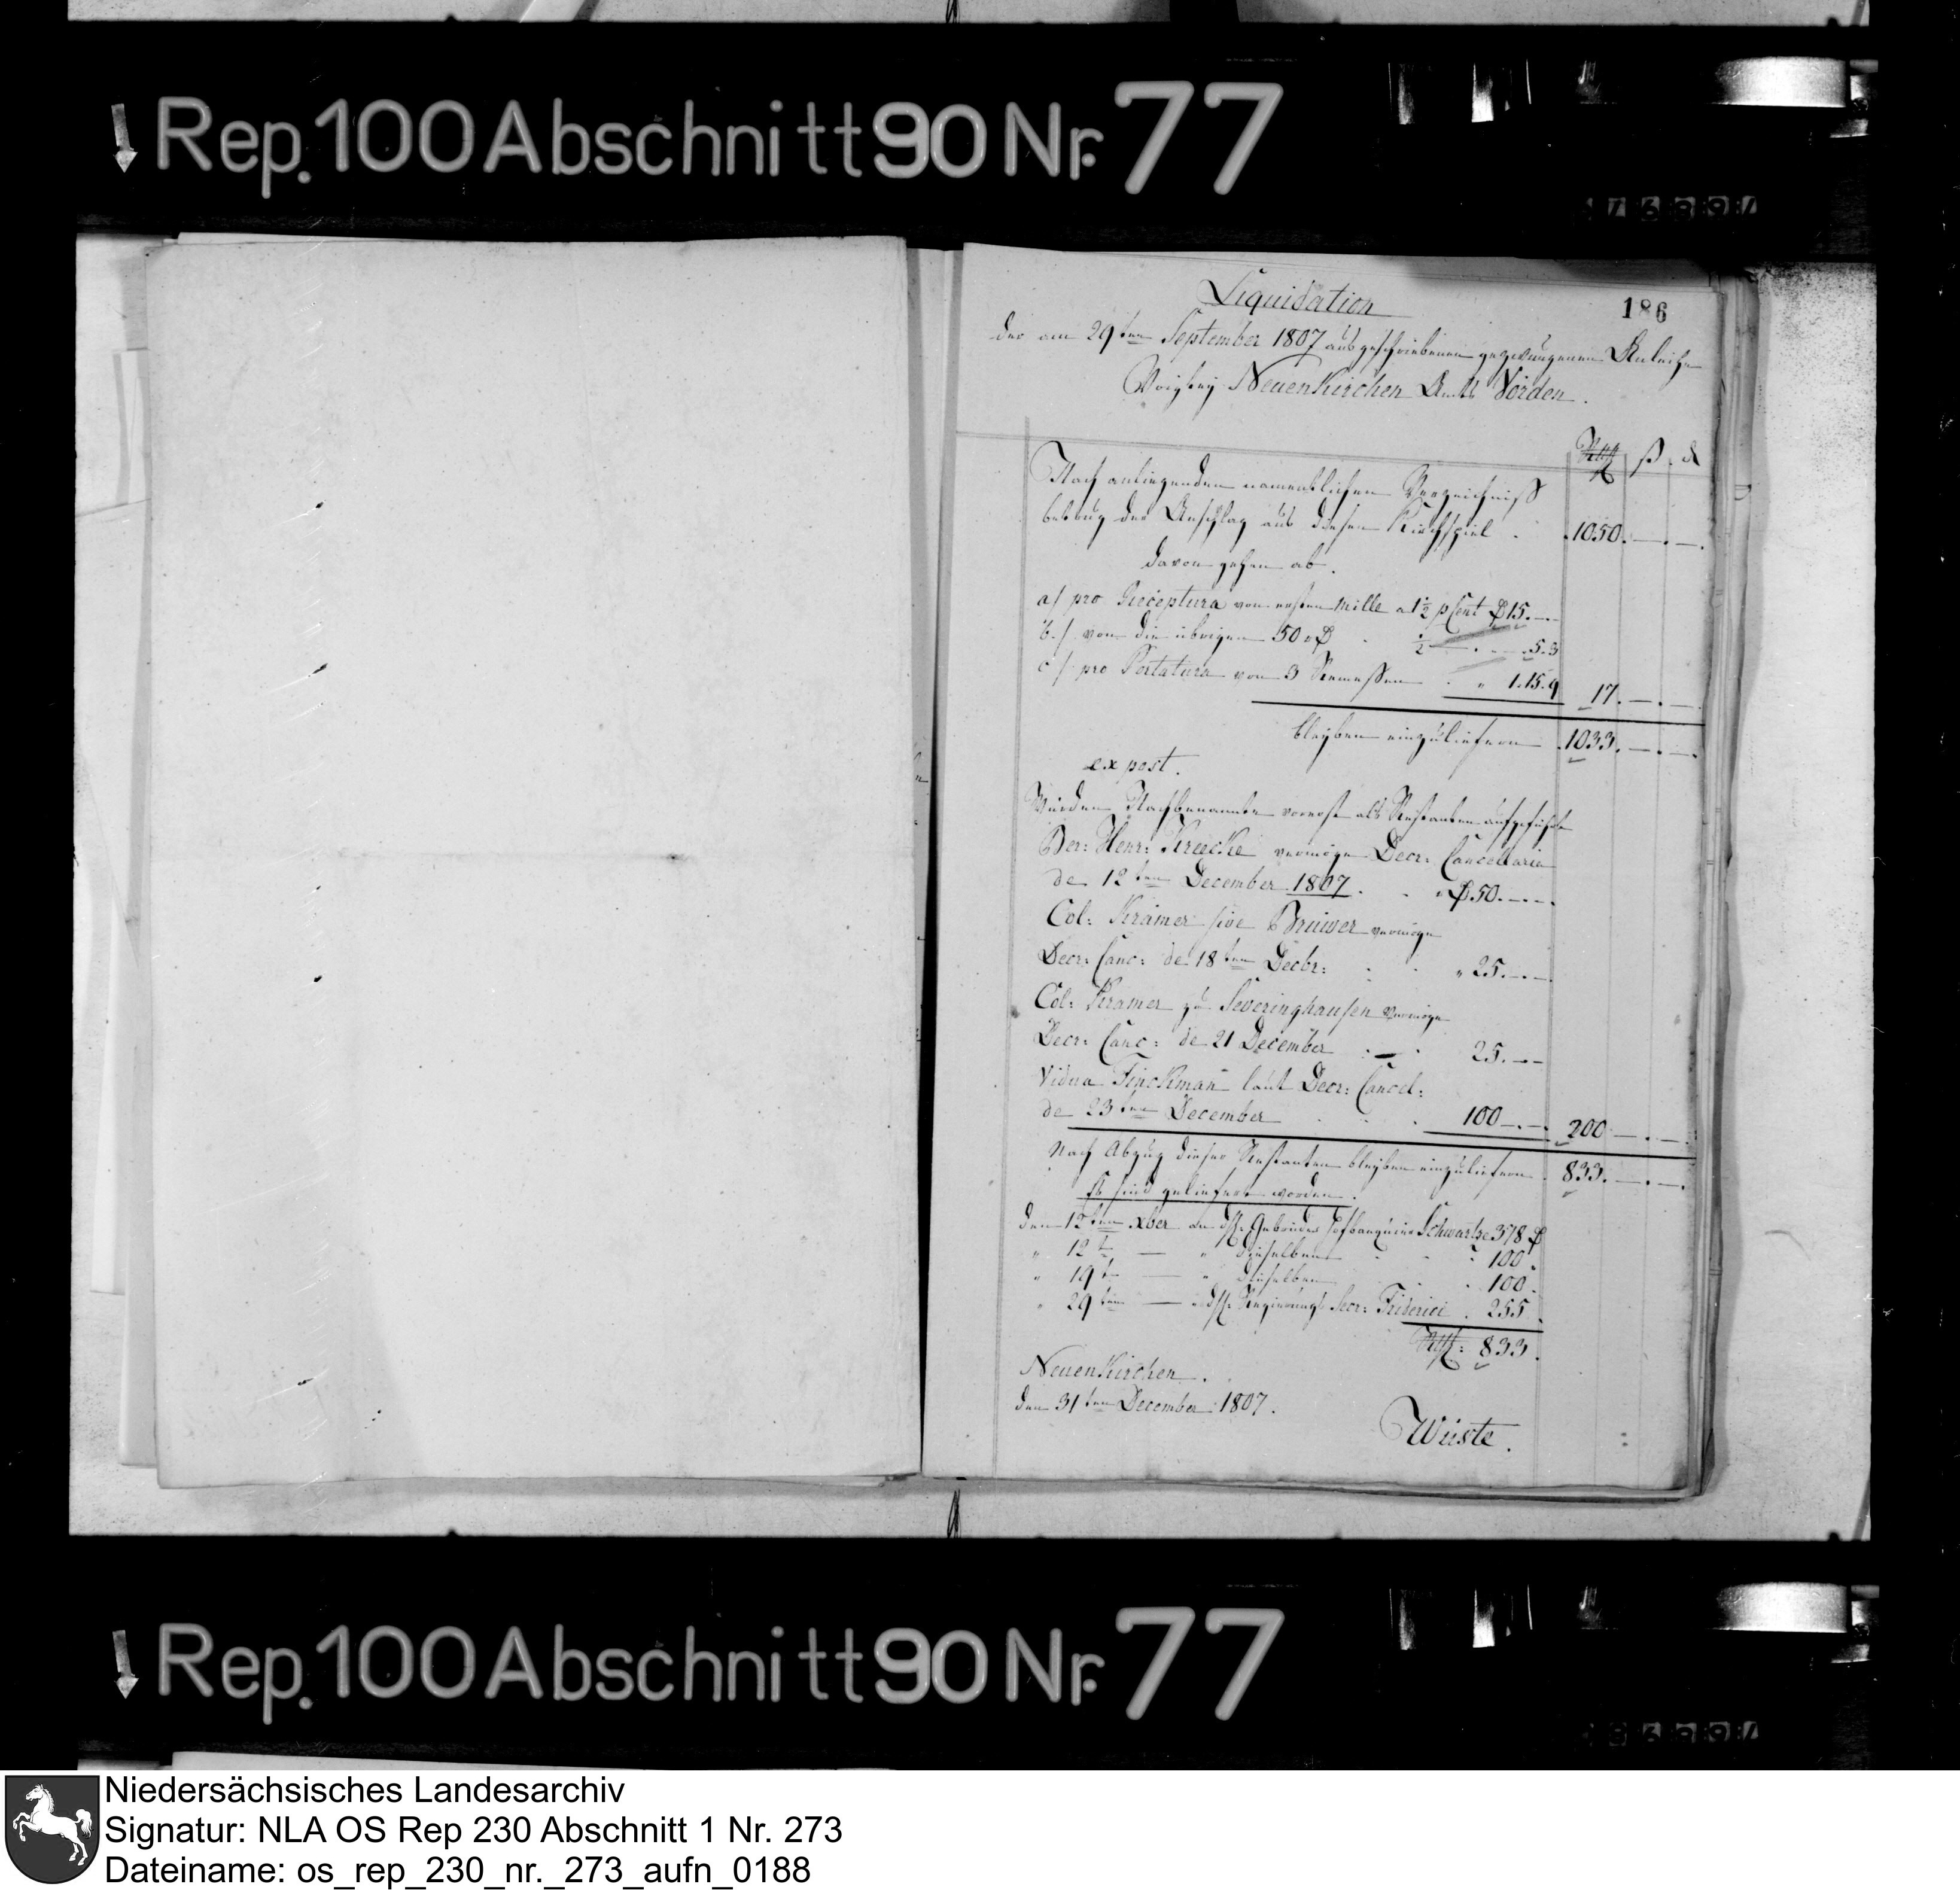 Rep. 100 Abschnitt 90 Nr. 77
186
Liquidation
der am 29ten September 1807 ausgeschriebenen gezwungenen Anleihe
Voigtey Neuenkirchen Amts Vörden.
Rthlr ß. d
Nach anliegenden namentlichen Verzeichniß
betrug der Anschlag aus diesem Kirchspiel . 1050. —. —.
davon gehen ab.
a/ pro Receptura vom ersten Mille a 1½ pCent 15. —. —
b./ von die übrigen 50 . ½ — . — . 5. 3
c/ pro Portatura von 3 Remessen . " 1. 15. 9 17. —. —.
bleyben einzuliefern 1033. —. —.
ex post.
Würden Nachbenannte vorerst als Restanten aufgeführt
Her: Henr: Kreecke vermöge Decr: Cancellariae
de 12ten December 1807. 50. —. —.
Col: Kramer sive Brüwer vermöge
Decr: Canc: de 18ten Decbr: " 25. —. —
Col: Kramer zu Severinghausen vermöge
Decr: Canc: de 21 December 25. —. —
Vidua Finckman laut Decr: Cancel:
de 23ten December 100 —. —. 200 —. —.
Nach Abzug dieser Restanten bleyben einzuliefern . 833. —. —.
Es sind geliefert worden.
den 12ten xber an die Gebrüder Hofbanquier Schwartze 378
" 12t — " dieselben 100.
" 19t — " dieselben 100.
" 29ten — " Regierungs Secr: Friderici . 255.
Rthlr: 833.
Neuenkirchen.
den 31ten December 1807.
Wüste.
Rep. 100 Abschnitt 90 Nr. 77
Niedersächsisches Landesarchiv
Signatur: NLA OS Rep 230 Abschnitt 1 Nr. 273
Dateiname: os_rep_230_nr._273_aufn_0188